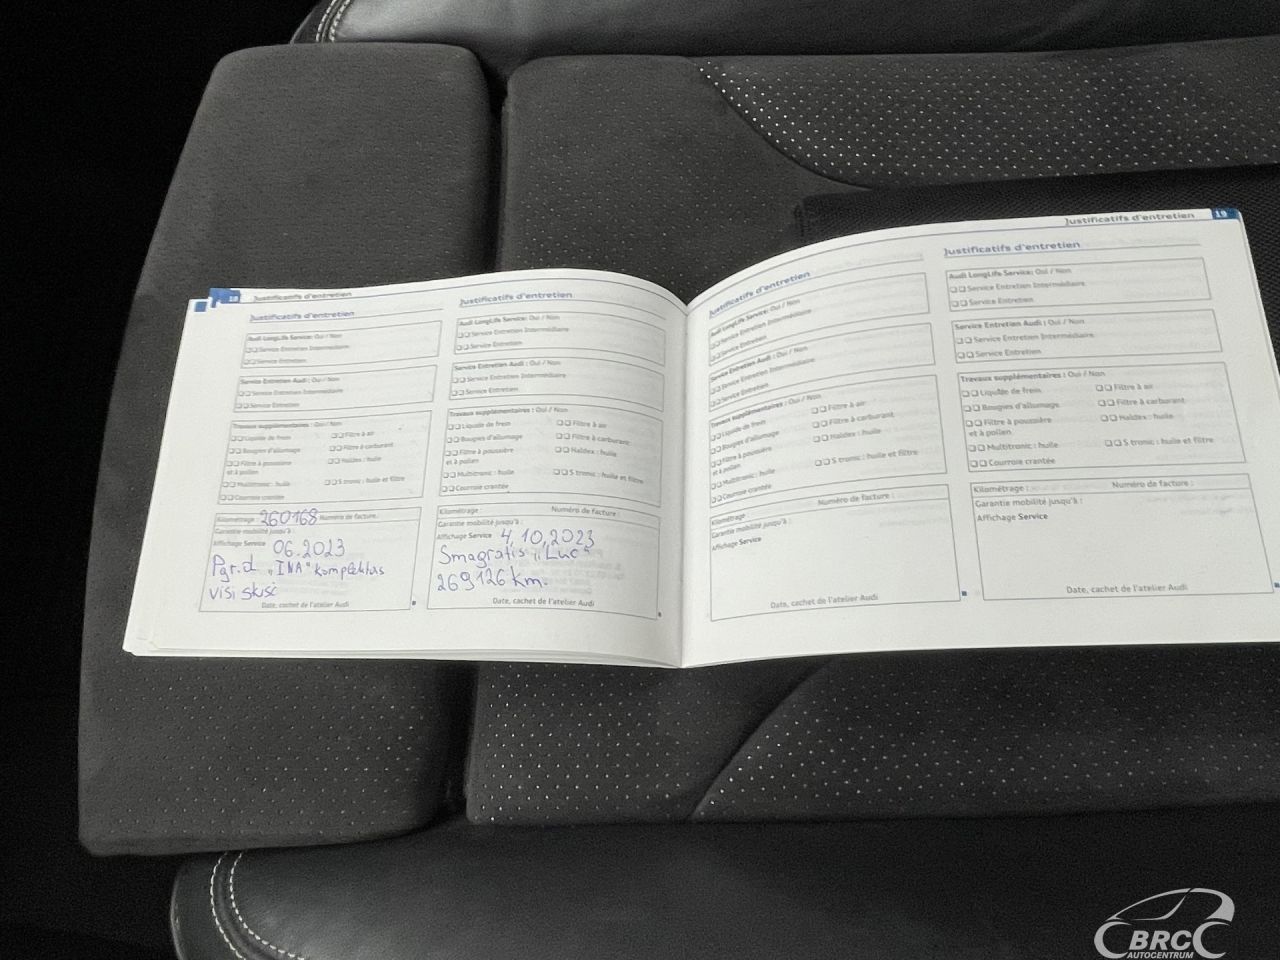 18 Justificatifs d'entretien
Justificatifs d'entretien
Audi LongLife Service: Oui / Non
Service Entretien Intermédiaire
Service Entretien
Service Entretien Audi : Oui / Non
Service Entretien Intermédiaire
Service Entretien
Travaux supplémentaires : Oui / Non
Liquide de frein Filtre à air
Bougies d'allumage Filtre à carburant
Filtre à poussière et à pollen Haldex : huile
Multitronic : huile S tronic : huile et filtre
Courroie crantée
Kilométrage : 260168 Numéro de facture :
Garantie mobilité jusqu'à :
Affichage Service 06.2023
Pgr.d „INA" komplektas
visi skisč
Date, cachet de l'atelier Audi
Justificatifs d'entretien
Audi LongLife Service: Oui / Non
Service Entretien Intermédiaire
Service Entretien
Service Entretien Audi : Oui / Non
Service Entretien Intermédiaire
Service Entretien
Travaux supplémentaires : Oui / Non
Liquide de frein Filtre à air
Bougies d'allumage Filtre à carburant
Filtre à poussière et à pollen Haldex : huile
Multitronic : huile S tronic : huile et filtre
Courroie crantée
Kilométrage : Numéro de facture :
Garantie mobilité jusqu'à :
Affichage Service 4,10,2023
Smagratis „Luc"
269126 km.
Date, cachet de l'atelier Audi
Justificatifs d'entretien
Audi LongLife Service: Oui / Non
Service Entretien Intermédiaire
Service Entretien
Service Entretien Audi : Oui / Non
Service Entretien Intermédiaire
Service Entretien
Travaux supplémentaires : Oui / Non
Liquide de frein Filtre à air
Bougies d'allumage Filtre à carburant
Filtre à poussière et à pollen Haldex : huile
Multitronic : huile S tronic : huile et filtre
Courroie crantée
Kilométrage : Numéro de facture :
Garantie mobilité jusqu'à :
Affichage Service
Date, cachet de l'atelier Audi
Justificatifs d'entretien 19
Justificatifs d'entretien
Audi LongLife Service: Oui / Non
Service Entretien Intermédiaire
Service Entretien
Service Entretien Audi : Oui / Non
Service Entretien Intermédiaire
Service Entretien
Travaux supplémentaires : Oui / Non
Liquide de frein Filtre à air
Bougies d'allumage Filtre à carburant
Filtre à poussière et à pollen Haldex : huile
Multitronic : huile S tronic : huile et filtre
Courroie crantée
Kilométrage : Numéro de facture :
Garantie mobilité jusqu'à :
Affichage Service
Date, cachet de l'atelier Audi
BRC
AUTOCENTRUM